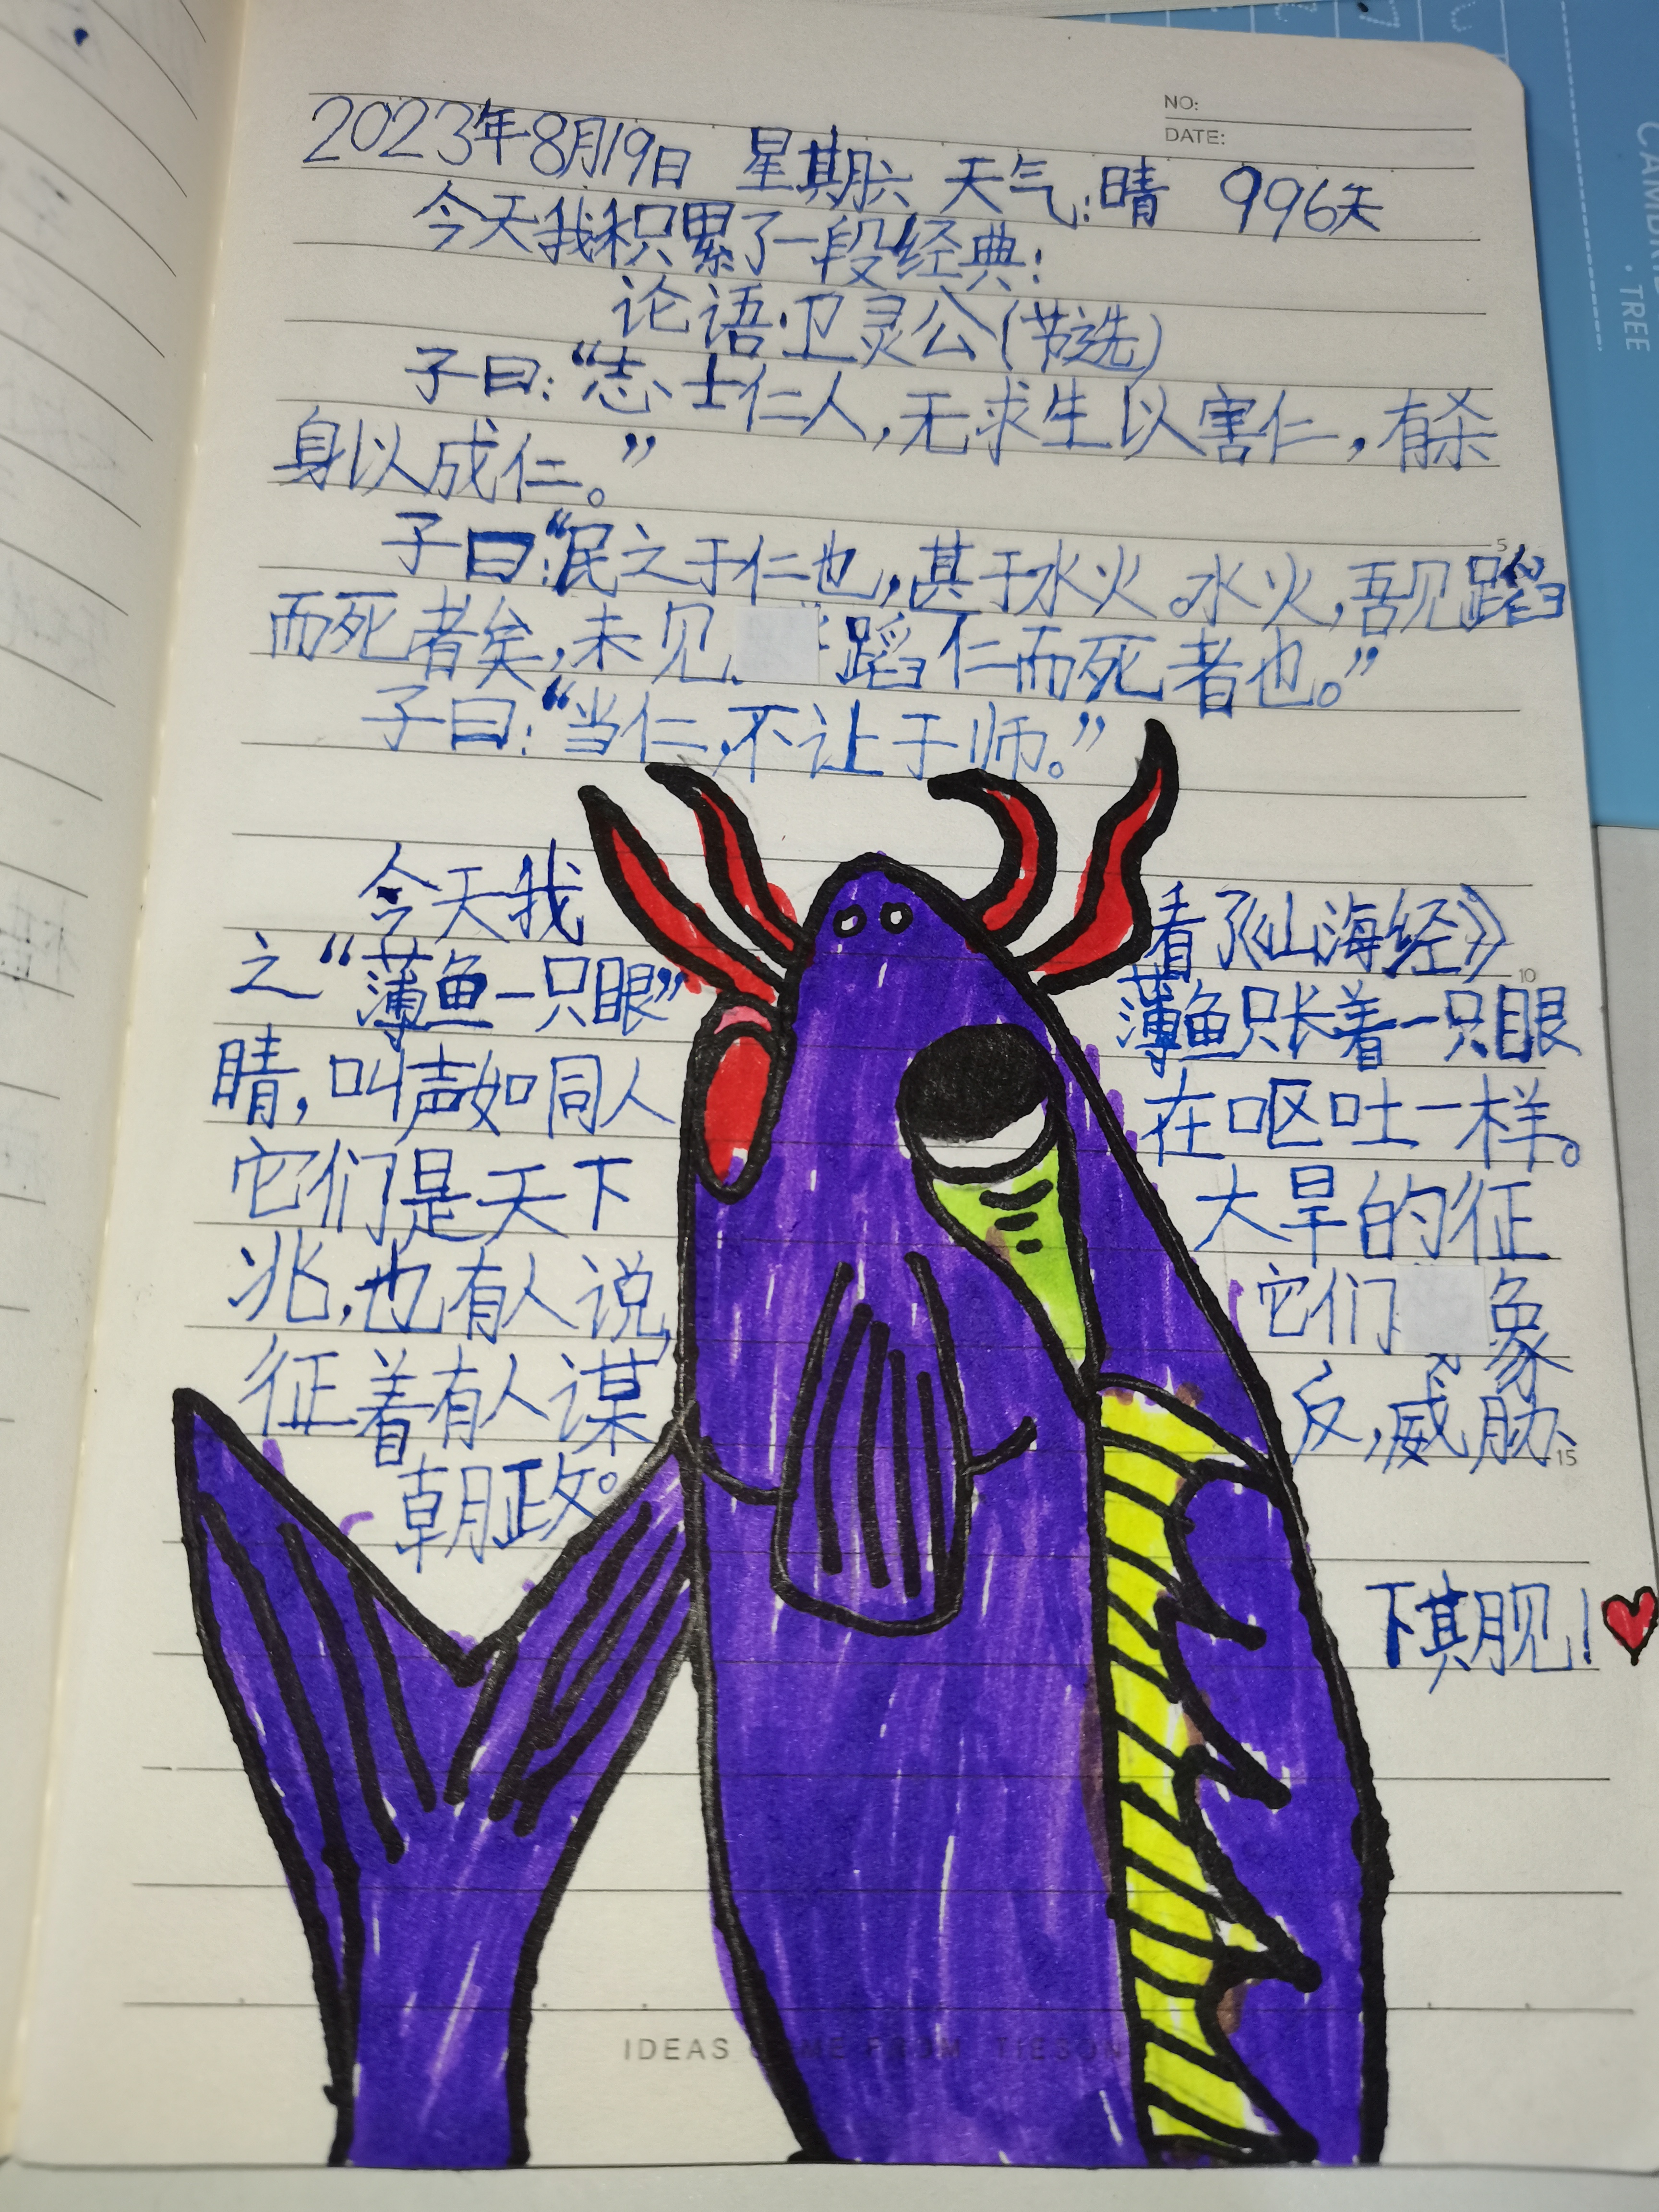 NO:
DATE:
2023年8月19日 星期六 天气:晴 996天
今天我积累了一段经典:
论语·卫灵公(节选)
子曰:“志士仁人,无求生以害仁,有杀
身以成仁。”
子曰:“民之于仁也,甚于水火。水火,吾见蹈
而死者矣,未见蹈仁而死者也。”
子曰:“当仁,不让于师。”
今天我看了《山海经》
之“薄鱼一只眼”薄鱼只长着一只眼
睛,叫声如同人在呕吐一样。
它们是天下大旱的征
兆,也有人说,它们象
征着有人谋反,威胁
朝政。
下期见!
5
10
15
IDEAS COME FROM TIESON
CAMBRI
.TREE